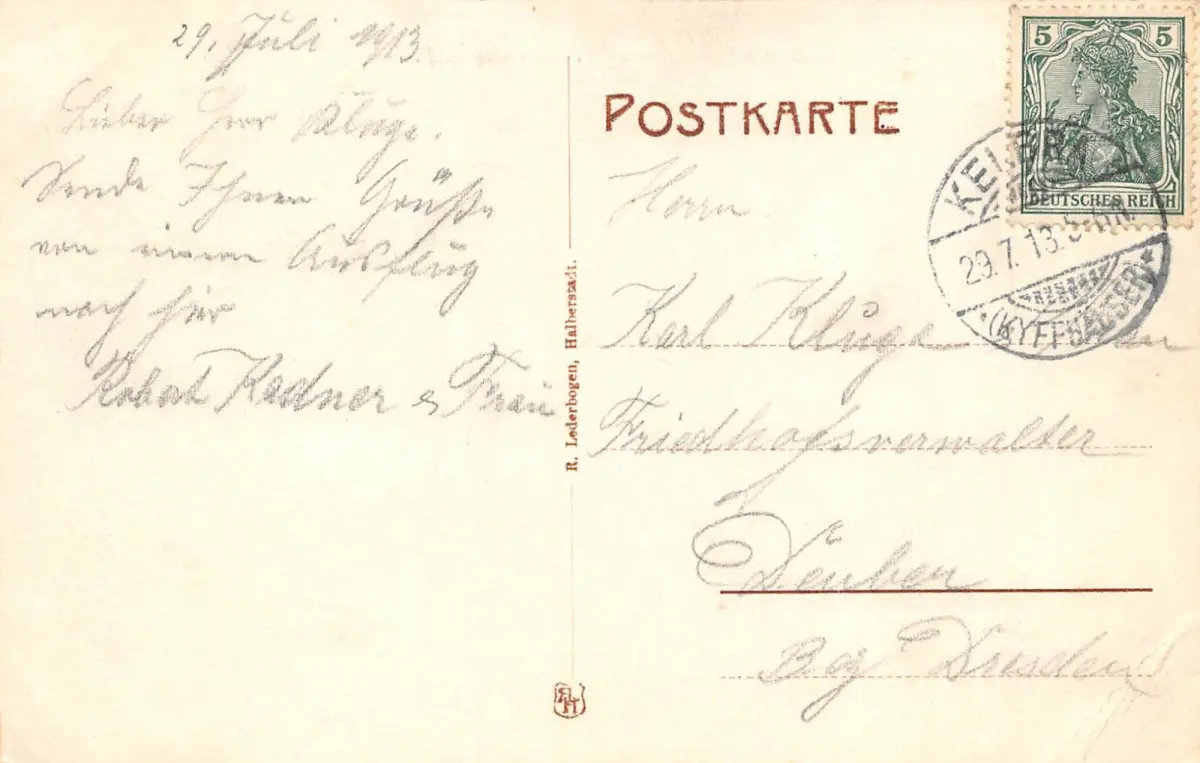 29. Juli 1913
Lieber Herr Kluge.
Sende Ihnen Grüße
von einem Ausflug
nach hier
Robert Kadner & Frau
POSTKARTE
Herrn
Karl Kluge
Friedhofsverwalter
in
Deuben
Bez Dresden
5 5
DEUTSCHES REICH
KELBRA
29.7.13. 5-6 N.
*(KYFFHÄUSER)*
R. Lederbogen, Halberstadt.